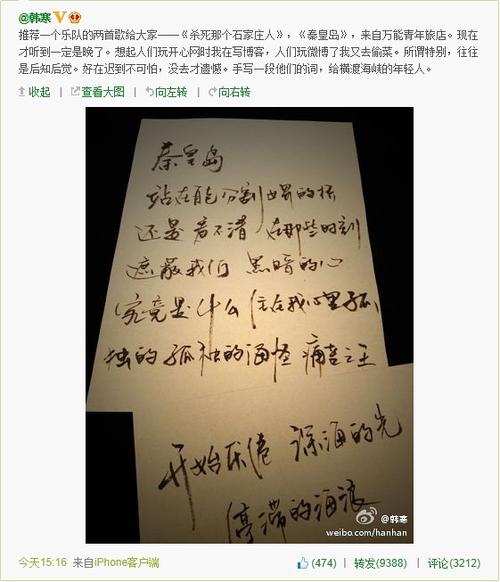 @韩寒
推荐一个乐队的两首歌给大家——《杀死那个石家庄人》，《秦皇岛》，来自万能青年旅店。现在
才听到一定是晚了。想起人们玩开心网时我在写博客，人们玩微博了我又去偷菜。所谓特别，往往
是后知后觉。好在迟到不可怕，没去才遗憾。手写一段他们的词，给横渡海峡的年轻人。
收起 | 查看大图 | 向左转 | 向右转
秦皇岛
站在能分割世界的桥
还是看不清 在那些时刻
遮蔽我们 黑暗的心
究竟是什么 住在我心里孤
独的 孤独的海怪 痛苦之王
开始厌倦 深海的光
停滞的海浪
@韩寒
weibo.com/hanhan
今天15:16 来自iPhone客户端
(474) | 转发(9388) | 评论(3212)